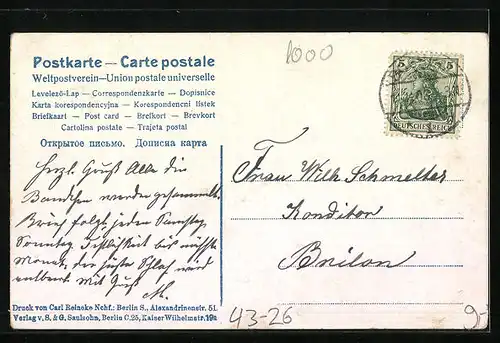 1000
Postkarte — Carte postale
Weltpostverein — Union postale universelle
Levelező-Lap — Correspondenzkarte — Dopisnice
Karta korespondencyjna — Korespondencni listek
Briefkaart — Post card — Brefkort — Brevkort
Cartolina postale — Trajeta postal
Открытое письмо. Дописна карта
5 5
DEUTSCHES REICH
Herzl. Gruß Alle die
werden gesammelt.
folgt, jeden Samstag,
Sonntag, Festlichkeit bis nächste
Monat, der wird
mit Gruß
Frau Wilh Schmelter
Konditor
Brilon
Druck von Carl Reincke Nchf.: Berlin S., Alexandrinenstr. 51.
Verlag v. S. & G. Saulsohn, Berlin C. 25, Kaiser Wilhelmstr. 19a
43-26
9-